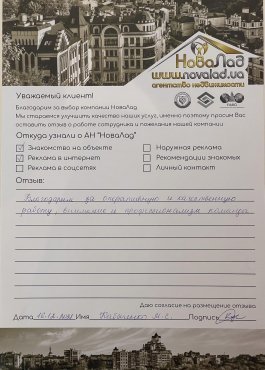 НоваЛад
www.novalad.ua
агентство недвижимости
Уважаемый клиент!
Благодарим за выбор компании НоваЛад
Мы стараемся улучшить качество наших услуг, именно поэтому просим Вас
оставить отзыв о работе сотрудника и пожелания нашей компании
Откуда узнали о АН "НоваЛад"
Знакомство на объекте
Наружная реклама
Реклама в интернет
Рекомендации знакомых
Реклама в соцсетях
Личный контакт
Отзыв:
Благодарим за оперативную и качественную
работу, внимание и профессионализм команды
Даю согласие на размещение отзыва
Дата
Имя
Подпись